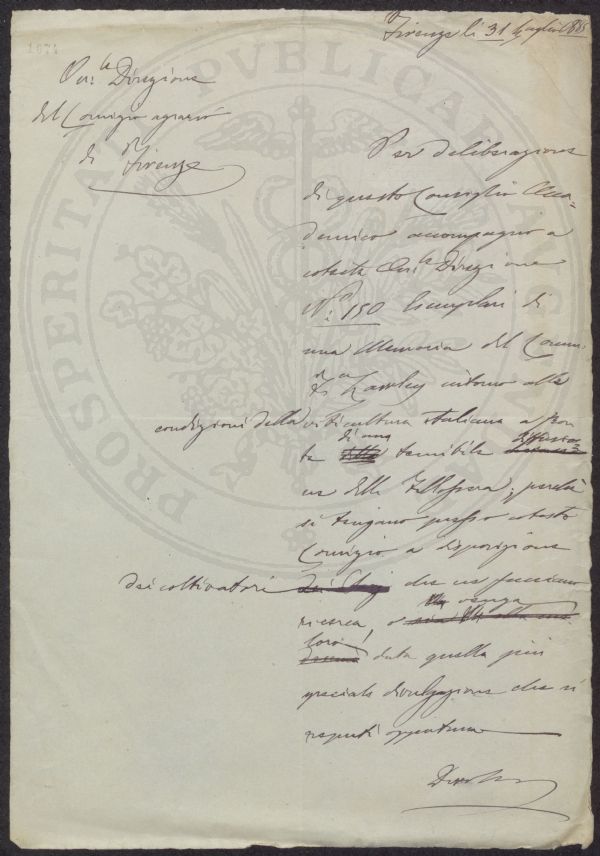 1071
Firenze li 31 Luglio
On.le Direzione
del Comizio agrario
di Firenze
Per deliberazione
di questo Consiglio Acca=
demico accompagno a
cotesta On.le Direzione
N.i 150 Esemplari di
una Memoria del Comm.
Lawley intorno alle
condizioni della viticultura italiana a fron
te di una temibile
ne della Fillossera; perché
si tengano presso cotesto
Comizio a disposizione
dei coltivatori che ne facciano
ricerca, o venga
loro data quella più
speciale divulgazione che si
reputi opportuna
PROSPERITATI PVBLICAE AVGENDAE